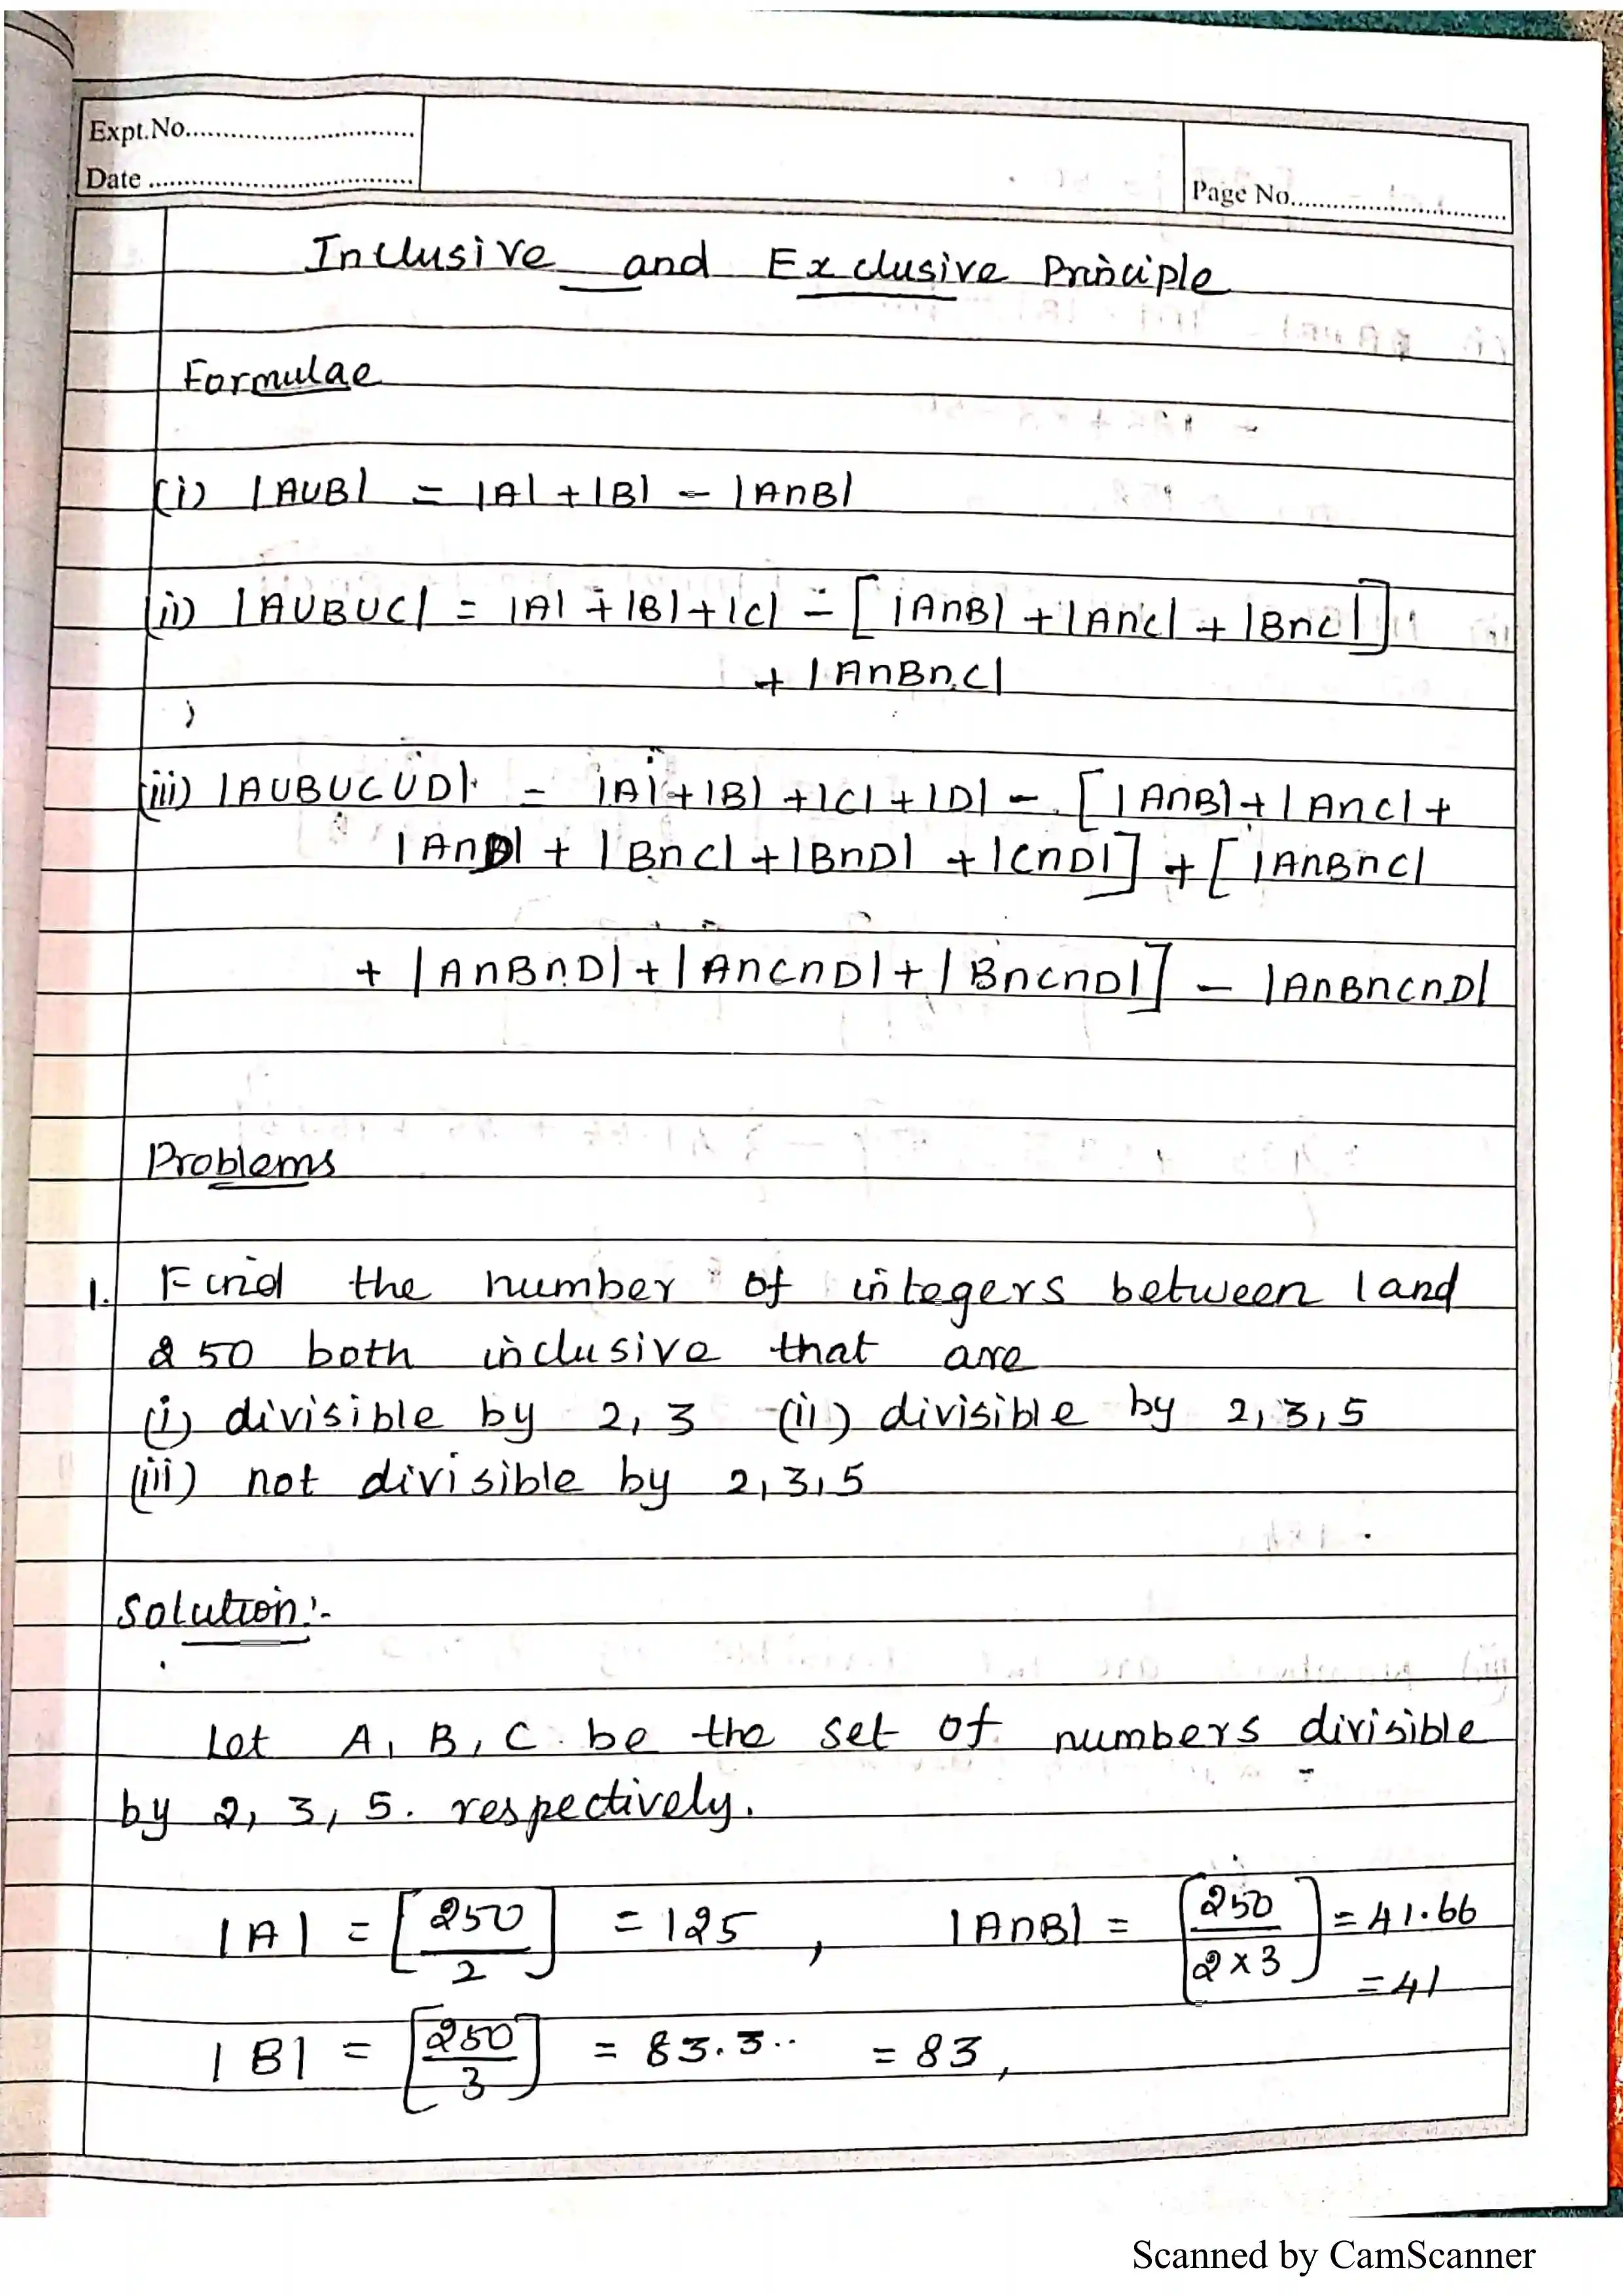 Expt.No..............................
Date ..................................
Page No..............................
Inclusive and Exclusive Principle
Formulae
(i) |A∪B| = |A| + |B| - |A∩B|
(ii) |A∪B∪C| = |A| + |B| + |C| - [|A∩B| + |A∩C| + |B∩C|]
+ |A∩B∩C|
(iii) |A∪B∪C∪D| - |A| + |B| + |C| + |D| - [|A∩B| + |A∩C| +
|A∩D| + |B∩C| + |B∩D| + |C∩D|] + [|A∩B∩C|
+ |A∩B∩D| + |A∩C∩D| + |B∩C∩D|] - |A∩B∩C∩D|
Problems
1. Find the number of integers between 1 and
250 both inclusive that are
(i) divisible by 2, 3 (ii) divisible by 2, 3, 5
(iii) not divisible by 2, 3, 5
Solution:-
Let A, B, C be the set of numbers divisible
by 2, 3, 5. respectively.
|A| = [250/2] = 125 , |A∩B| = [250/2×3] = 41.66
= 41
|B| = [250/3] = 83.3.. = 83,
Scanned by CamScanner